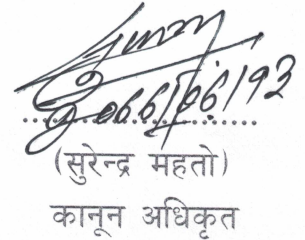 २०६६/०६/१३
(सुरेन्द्र महतो)
कानून अधिकृत